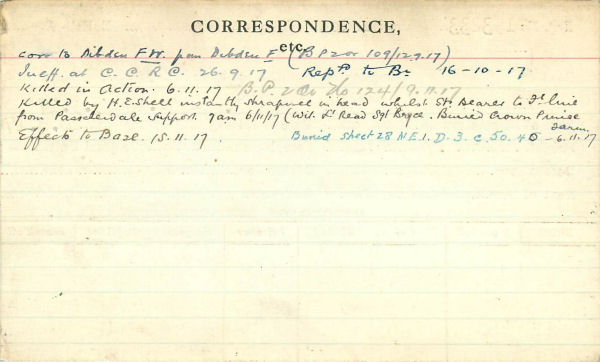 CORRESPONDENCE,
etc.
corr to Dibden F.W. from Dibden F (B P 2 or 109/12.9.17)
Ineff. at C. C. R C. 26.9.17 Repd. to Bn 16-10-17
Killed in Action. 6.11.17 B.P. 2 Co No 124/9.11.17
Killed by H.E. Shell instantly shrapnel in head whilst St. Bearer to Ft line
from Passchendale support 7am 6/11/17 (Wit. Lt Read Sgt Bryce. Buried Crown Prince
Farm.
Effects to Base. 15.11.17. Buried Sheet 28 N.E.1. D.3.c.50.45 - 6.11.17